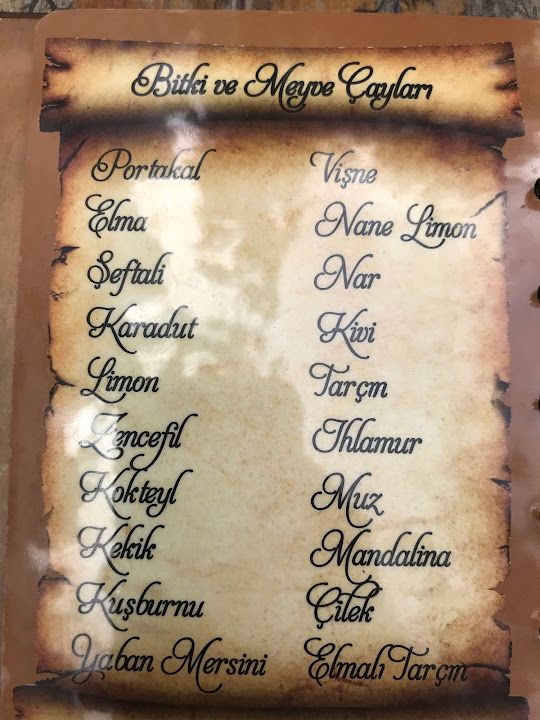 Bitki ve Meyve Çayları
Portakal
Elma
Şeftali
Karadut
Limon
Zencefil
Kokteyl
Kekik
Kuşburnu
Yaban Mersini
Vişne
Nane Limon
Nar
Kivi
Tarçın
Ihlamur
Muz
Mandalina
Çilek
Elmalı Tarçın